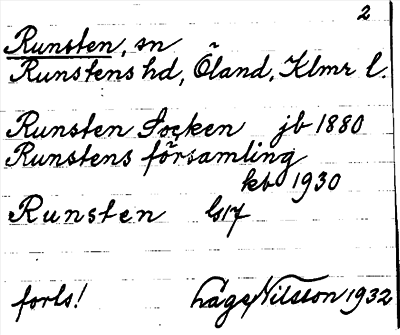 2
Runsten, sn
Runstens hd, Öland, Klmr l.
Runsten Socken jb 1880
Runstens församling
kb 1930
Runsten ls17
forts!
Häge Nilsson 1932